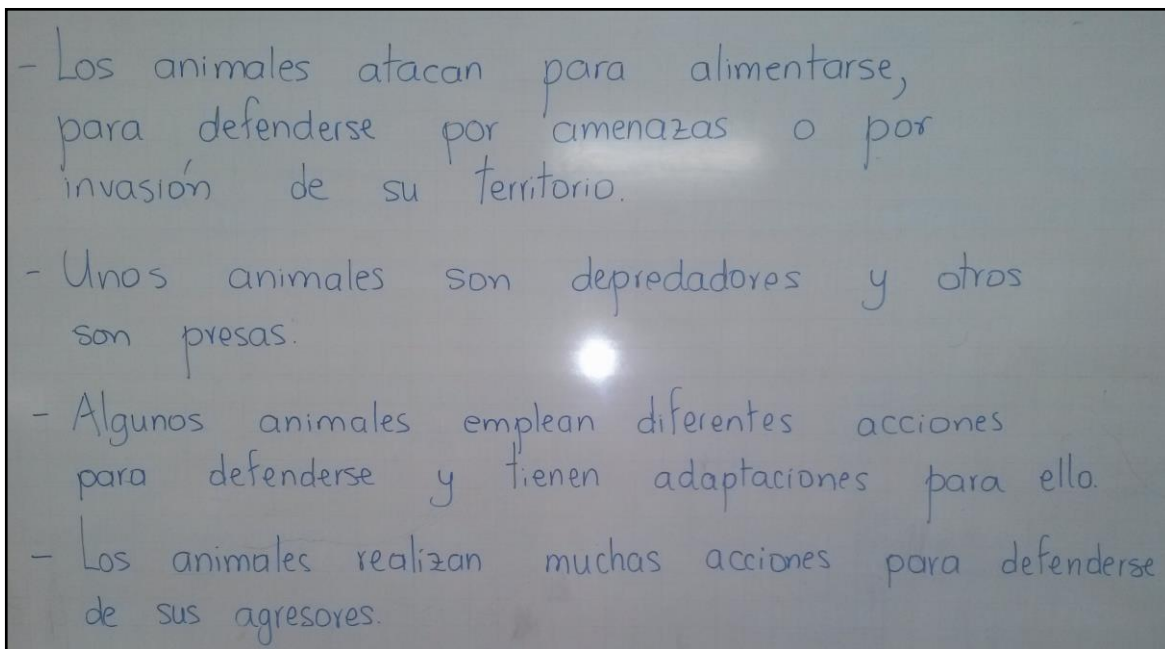 - Los animales atacan para alimentarse,
para defenderse por amenazas o por
invasión de su territorio.
- Unos animales son depredadores y otros
son presas.
- Algunos animales emplean diferentes acciones
para defenderse y tienen adaptaciones para ello.
- Los animales realizan muchas acciones para defenderse
de sus agresores.